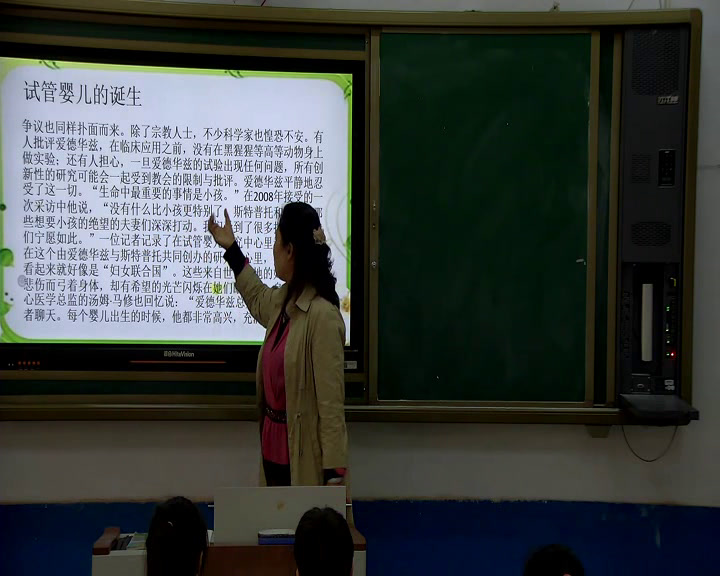 试管婴儿的诞生
争议也同样扑面而来。除了宗教人士，不少科学家也惶恐不安。有
人批评爱德华兹，在临床应用之前，没有在黑猩猩等高等动物身上
做实验；还有人担心，一旦爱德华兹的试验出现任何问题，所有创
新性的研究可能会一起受到教会的限制与批评。爱德华兹平静地忍
受了这一切。“生命中最重要的事情是小孩。”在2008年接受的一
次采访中他说，“没有什么比小孩更特别了。斯特普托和
些想要小孩的绝望的夫妻们深深打动。我 到了很多
们宁愿如此。”一位记者记录了在试管婴 中心里
在这个由爱德华兹与斯特普托共同创办的研 心里，
看起来就好像是“妇女联合国”。这些来自世 地的
悲伤而弓着身体，却有希望的光芒闪烁在她们
心医学总监的汤姆·马修也回忆说：“爱德华兹总
者聊天。每个婴儿出生的时候，他都非常高兴，充
HiteVision